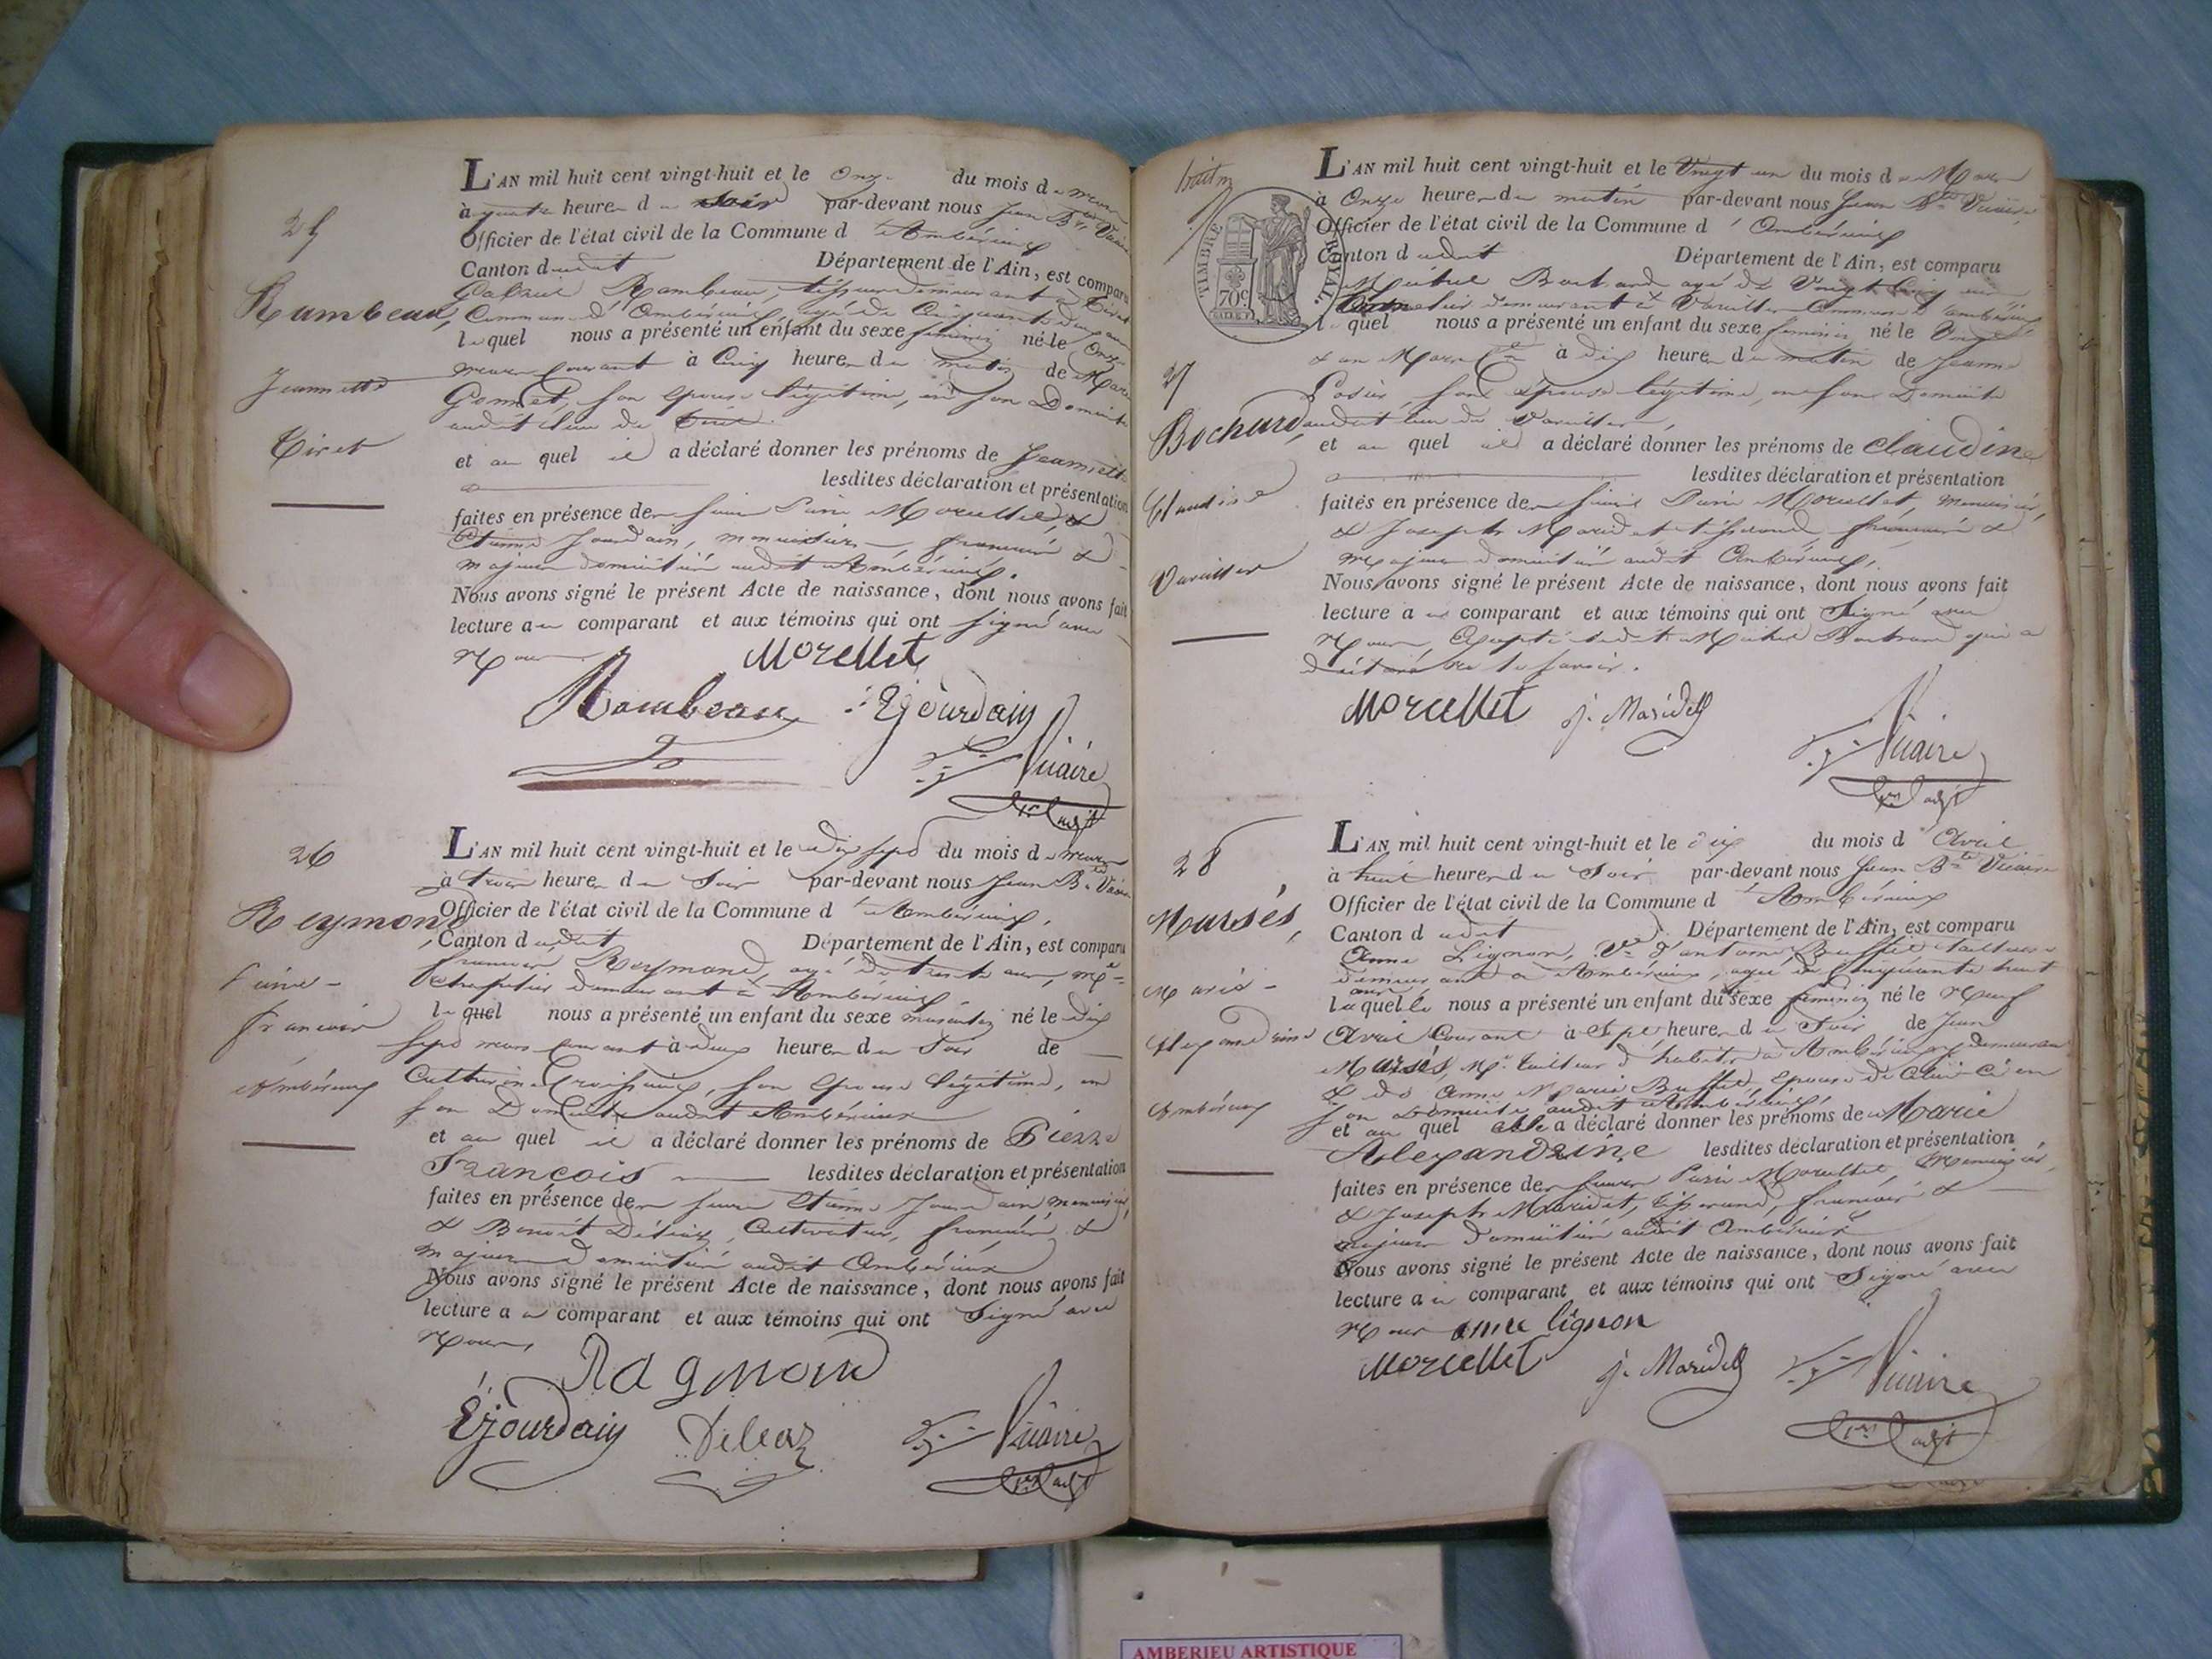 25
Rambeau,
Jeannette
Tiret
L'AN mil huit cent vingt-huit et le onze du mois de mars
à quatre heures du soir par-devant nous Jean Bte Vicaire
Officier de l'état civil de la Commune d'Ambérieux
Canton dudit Département de l'Ain, est comparu
Rambeau, demeurant à Tiret
Commune d'Ambérieux, agé de Cinquante deux ans
lequel nous a présenté un enfant du sexe féminin né le onze
mars courant à Cinq heures du matin de Marie
Gonnet, son épouse légitime, en son Domicile
audit lieu de Tiret.
et au quel il a déclaré donner les prénoms de Jeannette
lesdites déclaration et présentation
faites en présence de Pierre Morellet, &
Etienne Jourdain, menuisiers, français &
majeurs domiciliés audit Ambérieux.
Nous avons signé le présent Acte de naissance, dont nous avons fait
lecture au comparant et aux témoins qui ont signé avec
Nous
Morellet
Rambeau EJourdain
Vicaire
adjt
26
Reymond,
Pierre
François
Ambérieux
L'AN mil huit cent vingt-huit et le dix sept du mois de mars
à trois heures du soir par-devant nous Jean Bte Vicaire
Officier de l'état civil de la Commune d'Ambérieux,
Canton dudit Département de l'Ain, est comparu
François Reymond, agé de trente ans, Md
demeurant à Ambérieux,
lequel nous a présenté un enfant du sexe masculin né le dix
sept mars courant à deux heures du soir de
Catherine son épouse légitime, en
son Domicile audit Ambérieux
et au quel il a déclaré donner les prénoms de Pierre
François lesdites déclaration et présentation
faites en présence de Etienne Jourdain menuisier,
& Benoit Cultivateur, français &
majeurs domiciliés audit Ambérieux
Nous avons signé le présent Acte de naissance, dont nous avons fait
lecture au comparant et aux témoins qui ont signé avec
Nous,
Ragmond
EJourdain
Vicaire
adjt
TIMBRE ROYAL.
70c
27
Bochard,
Claudine
Vareilles
L'AN mil huit cent vingt-huit et le Vingt un du mois de Mars
à Onze heures du matin par-devant nous Jean Bte Vicaire
Officier de l'état civil de la Commune d'Ambérieux
Canton dudit Département de l'Ain, est comparu
agé de Vingt cinq ans
demeurant à Vareilles Commune d'Ambérieux
lequel nous a présenté un enfant du sexe féminin né le Vingt
& un Mars à dix heures du matin de Jeanne
son épouse légitime, en son Domicile
audit lieu de Vareilles,
et au quel il a déclaré donner les prénoms de Claudine
lesdites déclaration et présentation
faites en présence de Pierre Morellet, menuisier,
& Joseph Maridet tisserand français &
majeurs domiciliés audit Ambérieux,
Nous avons signé le présent Acte de naissance, dont nous avons fait
lecture au comparant et aux témoins qui ont Signé avec
Nous, excepté ledit qui a
déclaré ne le savoir.
Morcellet j. Maridet
Vicaire
adjt
28
Marsés,
Marie
Alexandrine
Ambérieux
L'AN mil huit cent vingt-huit et le dix du mois d'Avril
à huit heures du Soir par-devant nous Jean Bte Vicaire
Officier de l'état civil de la Commune d'Ambérieux
Canton dudit Département de l'Ain, est comparu
Anne Lignon, Ve d'Antoine Buffet,
demeurant à Ambérieux, agée de Cinquante huit
ans
laquelle nous a présenté un enfant du sexe féminin né le Neuf
Avril Courant à Sept heures du Soir de Jean
Marsés, Md Tailleur d'habits à Ambérieux y demeurant
& de Anne Marie Buffet, épouse de Celui-ci en
son Domicile audit Ambérieux,
et au quel elle a déclaré donner les prénoms de Marie
Alexandrine lesdites déclaration et présentation
faites en présence de Pierre Morellet, Menuisier,
& Joseph Maridet, tisserand, français &
majeurs domiciliés audit Ambérieux
Nous avons signé le présent Acte de naissance, dont nous avons fait
lecture au comparant et aux témoins qui ont Signé avec
Nous anne lignon
Morcellet j. Maridet Vicaire
adjt
AMBERIEU ARTISTIQUE